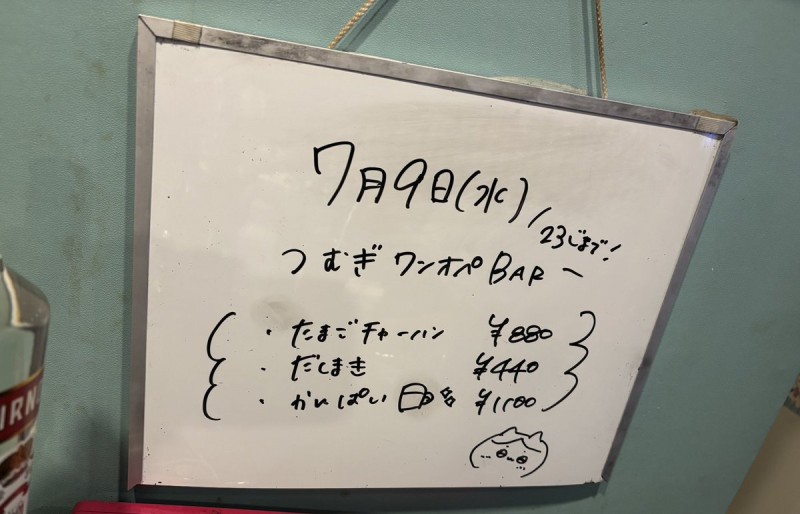 7月9日(水)
23じまで!
つむぎワンオペBAR〜
・たまごチャーハン ¥880
・だしまき ¥440
・かんぱい ¥1100
IRN